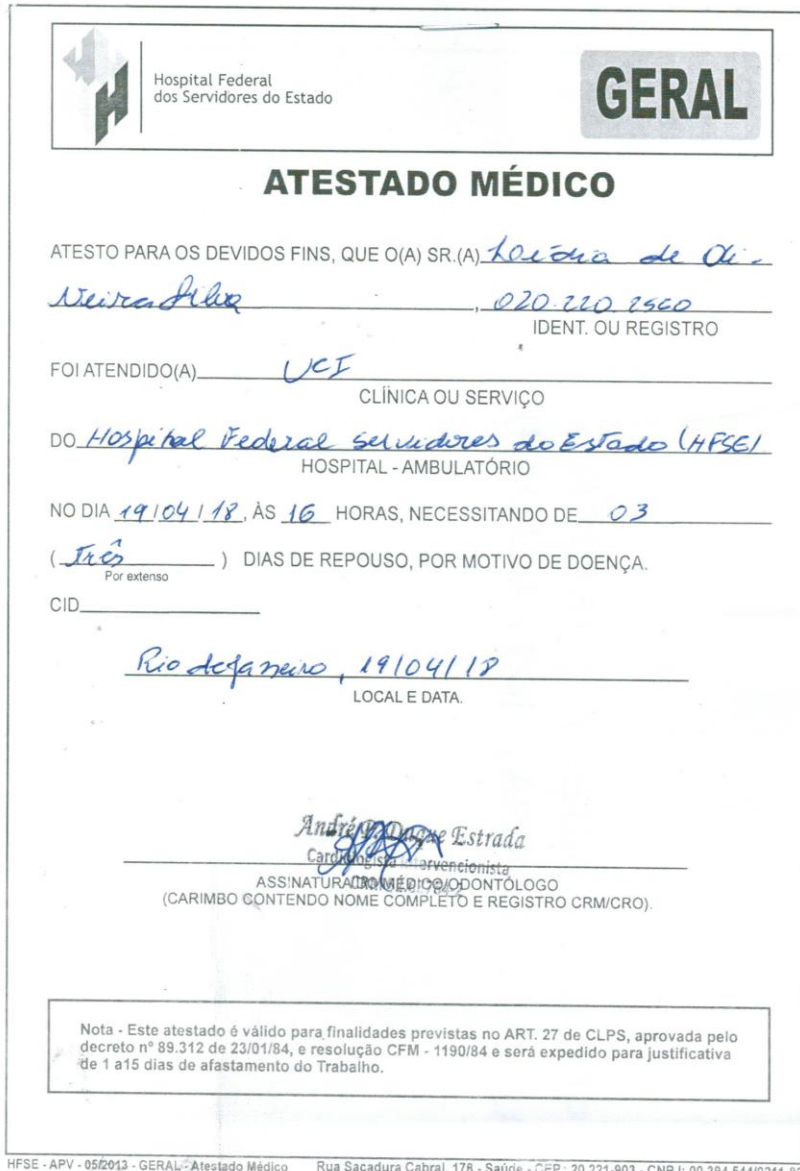 Hospital Federal
dos Servidores do Estado
GERAL
ATESTADO MÉDICO
ATESTO PARA OS DEVIDOS FINS, QUE O(A) SR.(A) de Oli-
Veira Silva , 020.220.2560
IDENT. OU REGISTRO
FOI ATENDIDO(A) UCI
CLÍNICA OU SERVIÇO
DO Hospital Federal Servidores do Estado (HFSE)
HOSPITAL - AMBULATÓRIO
NO DIA 19/04/18, ÀS 16 HORAS, NECESSITANDO DE 03
( Três ) DIAS DE REPOUSO, POR MOTIVO DE DOENÇA.
Por extenso
CID
Rio de Janeiro, 19/04/18
LOCAL E DATA.
André Duque Estrada
Cardiologista Intervencionista
ASSINATURA DO MÉDICO/ODONTÓLOGO
(CARIMBO CONTENDO NOME COMPLETO E REGISTRO CRM/CRO).
Nota - Este atestado é válido para finalidades previstas no ART. 27 de CLPS, aprovada pelo
decreto nº 89.312 de 23/01/84, e resolução CFM - 1190/84 e será expedido para justificativa
de 1 a15 dias de afastamento do Trabalho.
HFSE - APV - 05/2013 - GERAL - Atestado Médico Rua Sacadura Cabral, 178 - Saúde - CEP.: 20.221-903 - CNPJ: